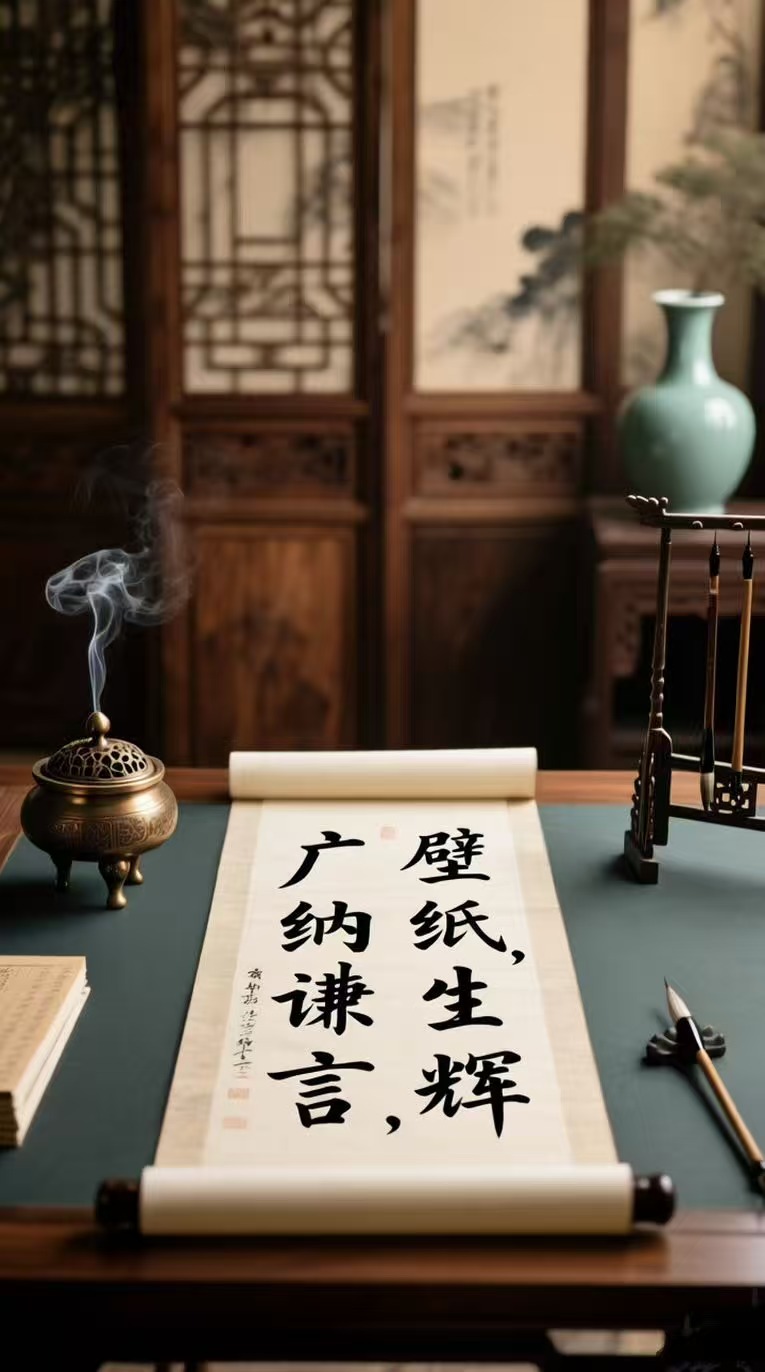 壁纸,生辉
广纳谦言,